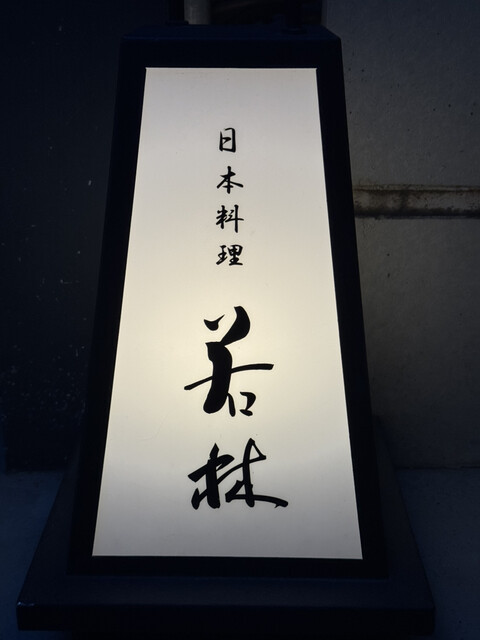 日本料理
若林